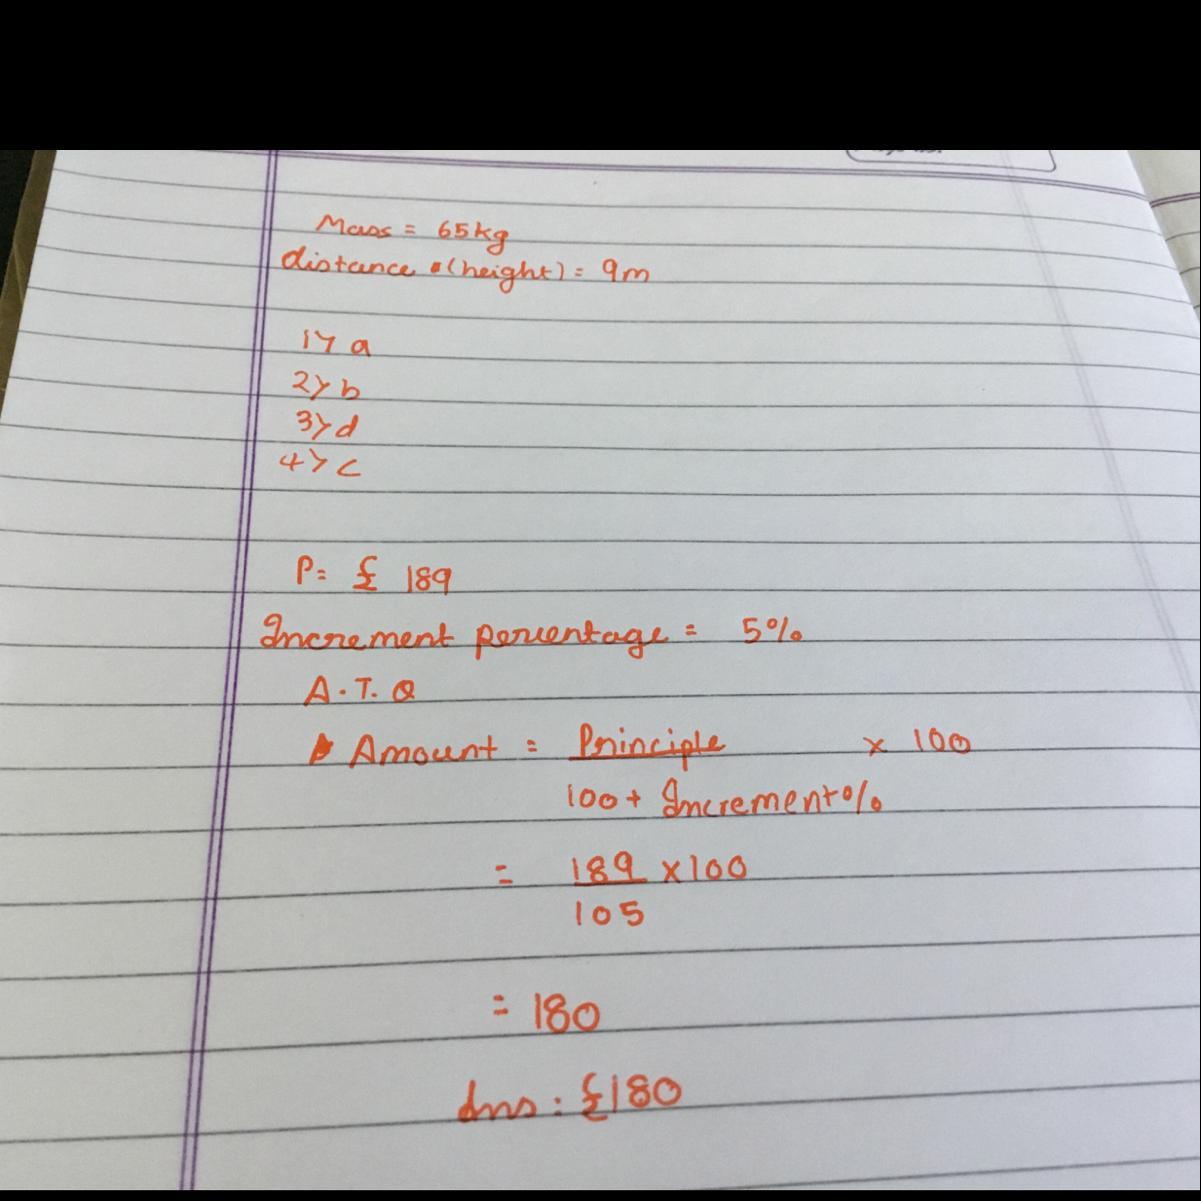 Mass = 65kg
distance (height) = 9m
1> a
2> b
3> d
4> c
P = £ 189
Increment percentage = 5%
A.T.Q
Amount = Principle × 100
100 + Increment%
= 189 ×100
105
= 180
Ans : £180